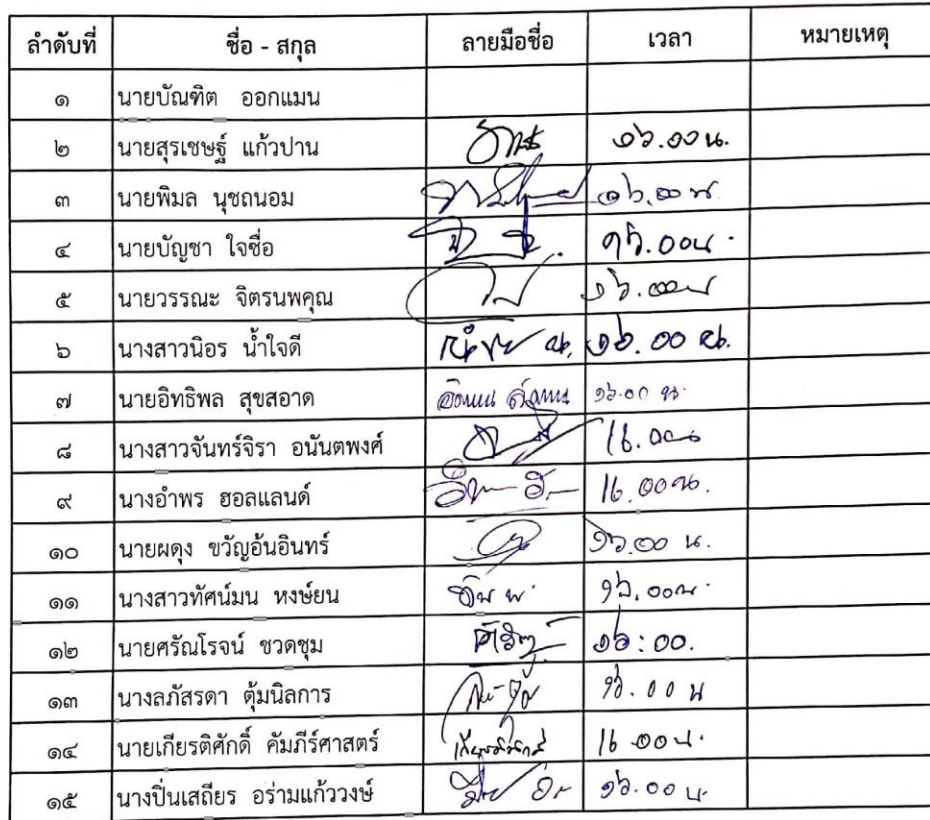 ลำดับที่ ชื่อ - สกุล ลายมือชื่อ เวลา หมายเหตุ
๑ นายบัณฑิต ออกแมน
๒ นายสุรเชษฐ์ แก้วปาน ๑๖.๐๐ น.
๓ นายพิมล นุชถนอม ๑๖.๐๐ น.
๔ นายบัญชา ใจซื่อ ๑๖.๐๐ น.
๕ นายวรรณะ จิตรนพคุณ ๑๖.๐๐ น
๖ นางสาวนิอร น้ำใจดี ๑๖.๐๐ น.
๗ นายอิทธิพล สุขสอาด ๑๖.๐๐ น.
๘ นางสาวจันทร์จิรา อนันตพงศ์ 16.00 น
๙ นางอำพร ฮอลแลนด์ 16.00 น.
๑๐ นายผดุง ขวัญอ้นอินทร์ ๑๖.๐๐ น.
๑๑ นางสาวทัศน์มน หงษ์ยน ๑๖.๐๐ น.
๑๒ นายศรัณโรจน์ ชวดชุม ๑๖:๐๐.
๑๓ นางลภัสรดา ตุ้มนิลการ ๑๖.๐๐ น
๑๔ นายเกียรติศักดิ์ คัมภีร์ศาสตร์ 16.00 น.
๑๕ นางปิ่นเสถียร อร่ามแก้ววงษ์ ๑๖.๐๐ น.